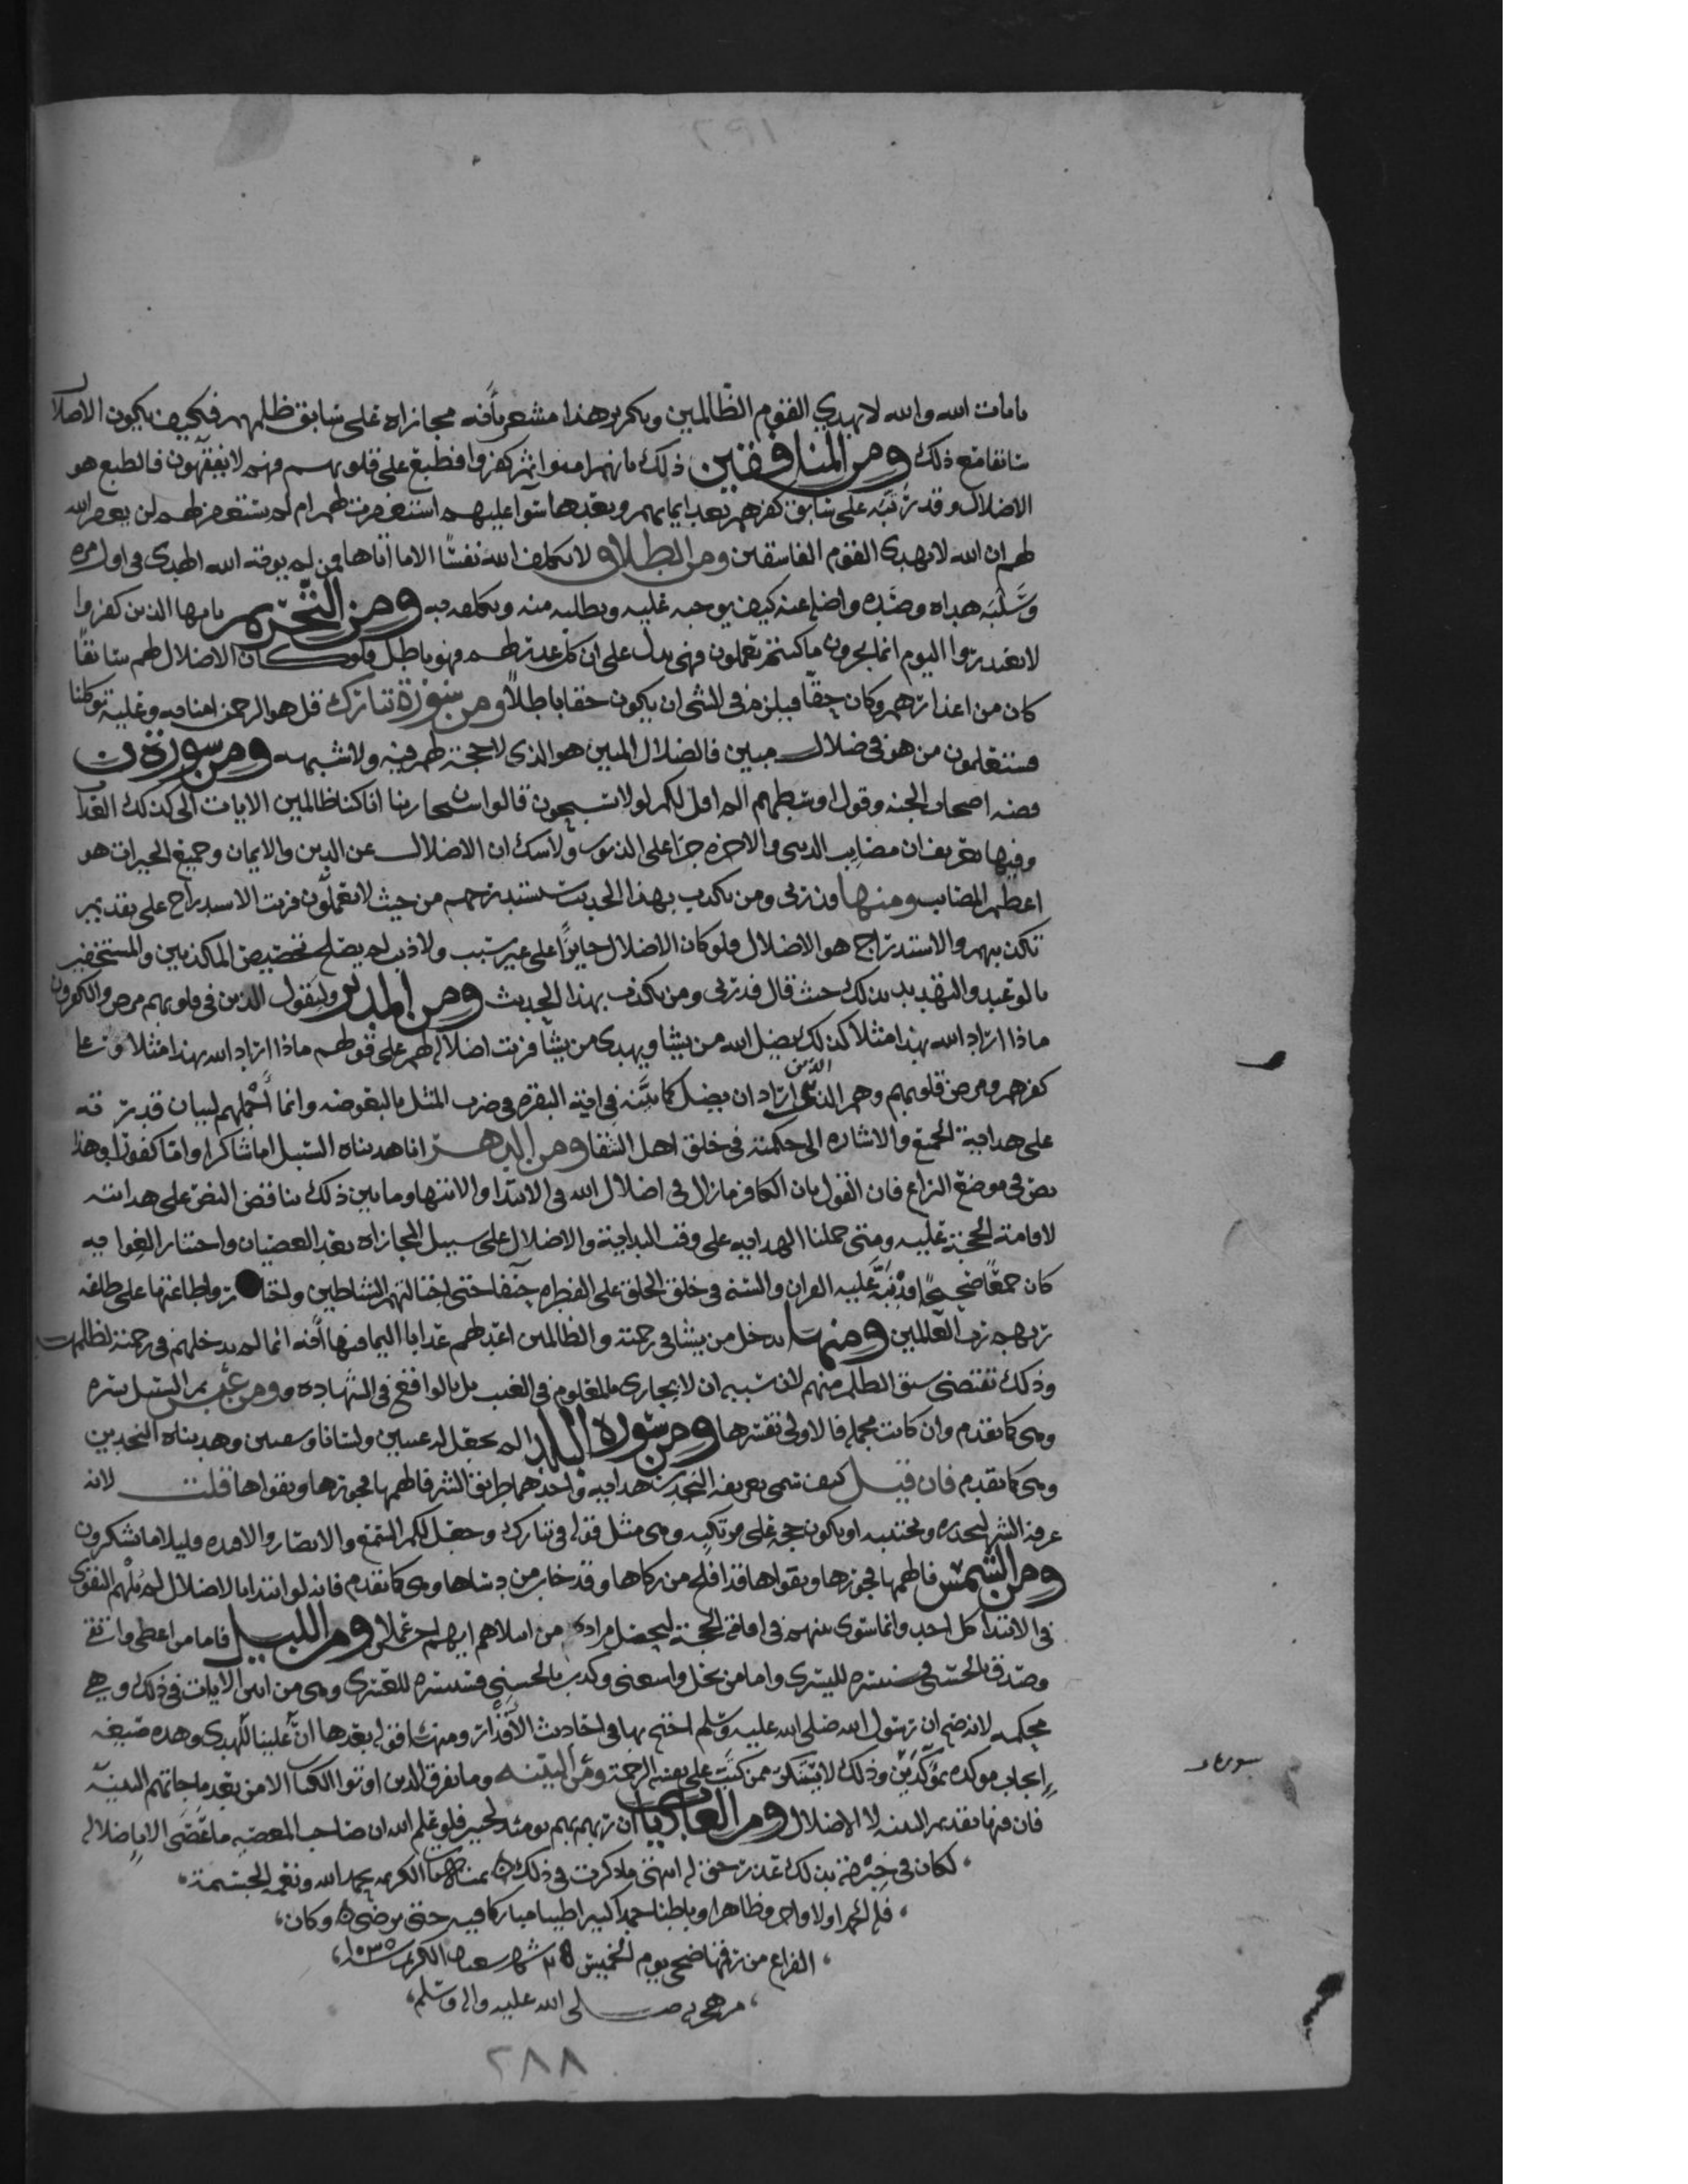 بايات الله والله لا يهدي القوم الظالمين وتكرير هذا مشعر بأنه مجازاه على سابق ظلمهم فكيف يكون الاضلال
سابقا مع ذلك ومن المنافقين ذلك بانهم امنوا ثم كفروا فطبع على قلوبهم فهم لا يفقهون فالطبع هو
الاضلال وقد رتبه على سابق كفرهم بعد ايمانهم وبعدها سوآ عليهم استغفرت لهم ام لم تستغفر لهم لن يغفر الله
لهم ان الله لا يهدى القوم الفاسقين ومن الطلاق لا يكلف الله نفسًا الا ما اتاها فمن لم يوته الله الهدى فى اول امره
وسَلَبَه هداه وصَدِه واضاعه كيف يوجبه عليه ويطلبه منه ويكلفه به ومن التحريم يا ايها الذين كفروا
لا تعتذروا اليوم انما تجزون ما كنتم تعملون فهى تدل على ان كل عذر لهم فهو باطل فلو كان الاضلال لهم سابقًا
كان من اعذارهم وكان حقًا فيلزم فى الشى ان يكون حقا باطلاً ومن سورة تبارك قل هو الرحمن امنا به وعليه توكلنا
فستعلمون من هو فى ضلال مبين فالضلال المبين هو الذى لا حجة لهم فيه ولا شبهه ومن سورة ن
قصه اصحاب الجنه وقول اوسطهم الم اقل لكم لولا تسبحون قالوا سبحان ربنا انا كنا ظالمين الايات الى كذلك العذاب
وفيها تعريف ان مصايب الدنيى والاخره جزا على الذنوب ولا شك ان الاضلال عن الدين والايمان وجميع الخيرات هو
اعظم المصايب ومنها فذرنى ومن يكذب بهذا الحديث سنستدرجهم من حيث لا يعلمون فرتب الاستدراج على تقدير
تكذيبهم والاستدراج هو الاضلال فلو كان الاضلال جايزًا على غير سبب ولا ذنب لم يصلح تخصيص المكذبين والمستخفين
بالوعيد والتهديد بذلك حيث قال فذرنى ومن يكذب بهذا الحديث ومن المدثر وليقول الذين فى قلوبهم مرض والكافرون
ماذا اراد الله بهذا مثلا كذلك يضل الله من يشا ويهدى من يشا فرتب اضلاله لهم على قولهم ماذا اراد الله بهذا مثلا وعلى
كفرهم ومرض قلوبهم وهم الذين اراد ان يضل كما بيّنه فى اية البقره فى ضرب المثل بالبعوضه وانما أجملهم لبيان قدرته
على هداية الجميع والاشاره الى حكمته فى خلق اهل الشقا ومن الدهر انا هديناه السبيل اما شاكرا واما كفورا وهذا
نص فى موضع النزاع فان القول بان الكافر ما زال فى اضلال الله فى الابتدا والانتها وما بين ذلك يناقض النص على هدايته
لاقامة الحجة عليه ومتى حملنا الهدايه على وقت البداية والاضلال على سبيل المجازاه بعد العصيان واختيار الغوايه
كان جمعًا صحيحًا قد نبّه عليه القران والسنه فى خلق الخلق على الفطره حنفا حتى اجتالتهم الشياطين واختاروا طاعتها على طاعه
ربهم رب العالمين ومنها يدخل من يشا فى رحمته والظالمين اعد لهم عذابا اليما فيها انه انما لم يدخلهم فى رحمته لظلمهم
وذلك تقتضى سبق الظلم منهم لان سببه ان لا يجازى بالمعلوم فى الغيب بل بالواقع فى الشهاده ومن عبس ثم السبيل يسره
وهى كما تقدم وان كانت مجمله فالاولى تفسرها ومن سورة البلد الم نجعل له عينين ولسانا وشفتين وهديناه النجدين
وهى كما تقدم فان قيل كيف تسمى تعريف النجدين هدايه واحدهما طريق الشر فالهمها فجورها وتقواها قلت لانه
عرفه الشر ليحذره ويجتنبه او يكون حجه على مرتكبه وهى مثل قوله فى تبارك وجعل لكم السمع والابصار والافئده قليلا ما تشكرون
ومن الشمس فالهمها فجورها وتقواها قد افلح من زكاها وقد خاب من دساها وهى كما تقدم فانه لو ابتدا بالاضلال لم يلهم التقوى
فى الابتدا كل احد وانما سوى بينهم فى اقامة الحجة ليحصل مراده من ابتلاهم ايهم احسن عملا ومن الليل فاما من اعطى واتقى
وصدق بالحسنى فسنيسره لليسرى واما من بخل واستغنى وكذب بالحسنى فسنيسره للعسرى وهى من ابين الايات فى ذلك وهى
محكمه لانه صح ان رسول الله صلى الله عليه وسلم احتج بها فى احاديث الأقدار ومنها قوله بعدها انّ علينا للهدى وهذه صيغه
إيجاب موكده بمؤكدين وذلك لا يستنكر ممن كتب على نفسه الرحمة ومن البينه وما تفرق الذين اوتوا الكتاب الا من بعد ما جاتهم البينة
فان فيها تقديم البينه لا الاضلال ومن العاديات ان ربهم بهم يومئذ لخبير فلو علم الله ان صاحب المعصيه ما عصَى الا باضلاله
لكان فى خبرته بذلك عذر حق له انتهى ما ذكرت فى ذلك الكريم بحمد الله ونعمه الجسيمة
فله الحمد اولا واخرا وظاهرا وباطنا حمدا كثيرا طيبا مباركا فيه حتى يرضى وكان
الفراغ من رقمها ضحى يوم الخميس ٢٨ شهر شعبان الكريم سنة ١٠٣٥
من هجرته صلى الله عليه واله وسلم
٢٨٨